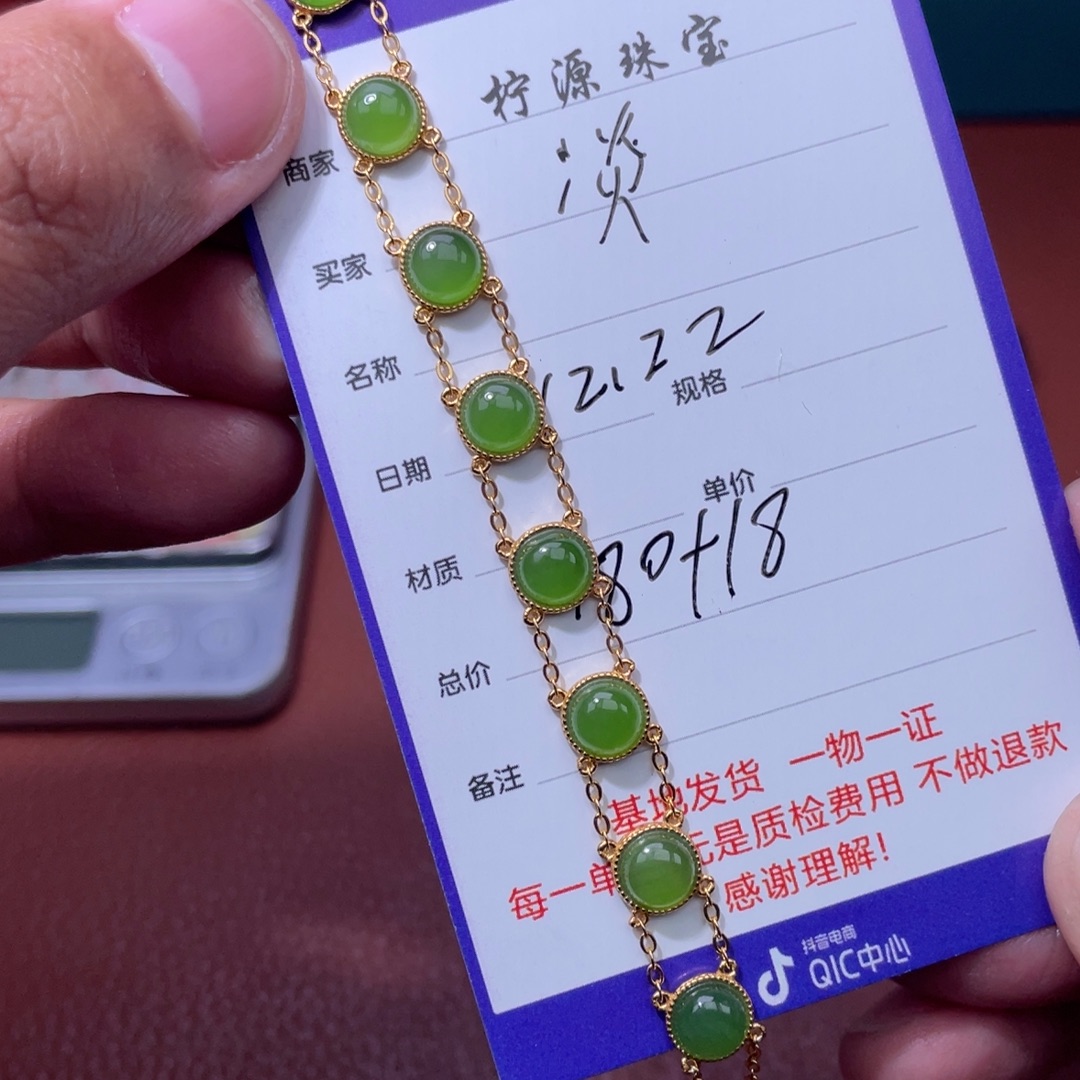 柠源珠宝
商家
淡
买家
名称
12122
日期 规格
单价
材质 180+18
总价
备注
基地发货 一物一证
每一单 元是质检费用 不做退款
感谢理解!
抖音电商
QIC中心